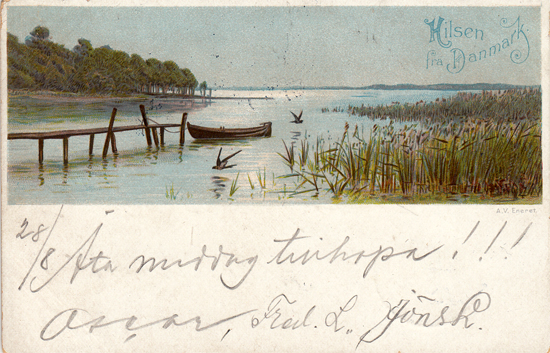 Hilsen
fra Danmark
A.V. Eneret.
28/8 Äta middag tivhopa!!!
Oscar, Fred. L., Jönsk.